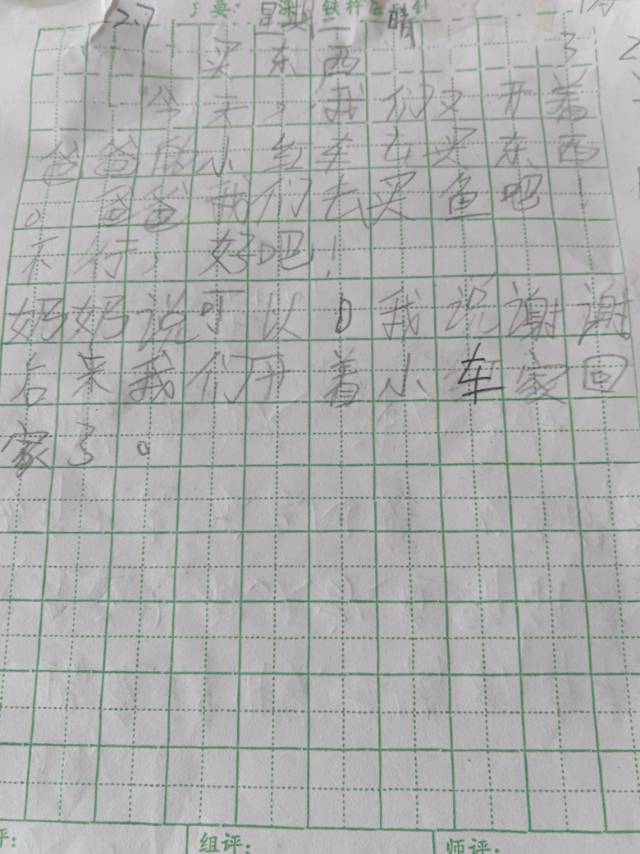 2.7 星期二 晴
买东西 3 2
今天,我们又开着
爸爸的小红车去买东西
。爸爸我们去买鱼吧!
不行,好吧!
奶奶说可以。我说谢谢
后来我们开着小车家回
家了。
组评: 师评: